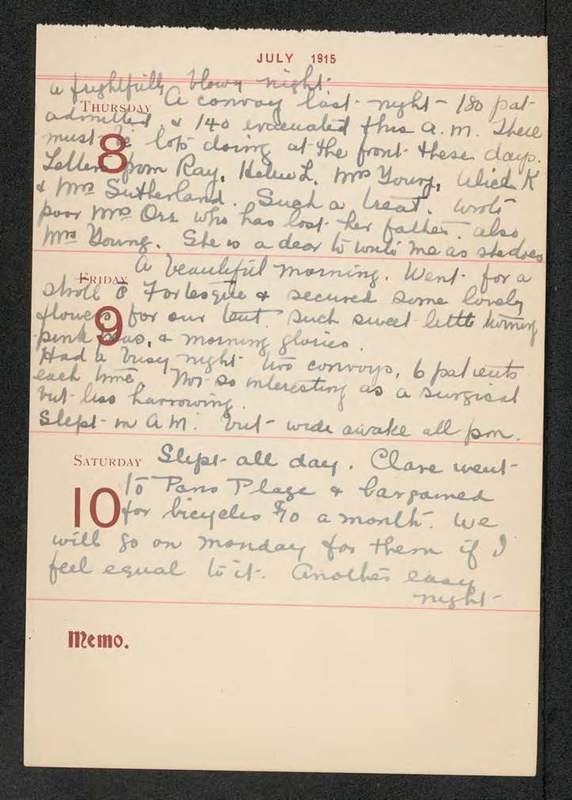 JULY 1915
a frightfully blowy night.
THURSDAY A convoy last night - 180 pat-
8 admitted & 140 evacuated this a.m. There
must be lots doing at the front these days.
Letters from Ray, Helen L. Mrs Young, Alice K
& Mrs Sutherland. Such a treat. Wrote
poor Mrs Orr who has lost her father. also
Mrs Young. She is a dear to write me as she does
FRIDAY A beautiful morning. Went for a
9 stroll c̄ Fortesque & secured some lovely
flowers for our tent. such sweet little
pink & morning glories.
Had a busy night two convoys, 6 patients
each time. Not so interesting as a surgical
but less harrowing.
Slept in A.M. but wide awake all p.m.
SATURDAY Slept all day. Clare went
10 to Paris Plage & bargained
for bicycles $10 a month. We
will go on Monday for them if I
feel equal to it. Another easy
night
Memo.